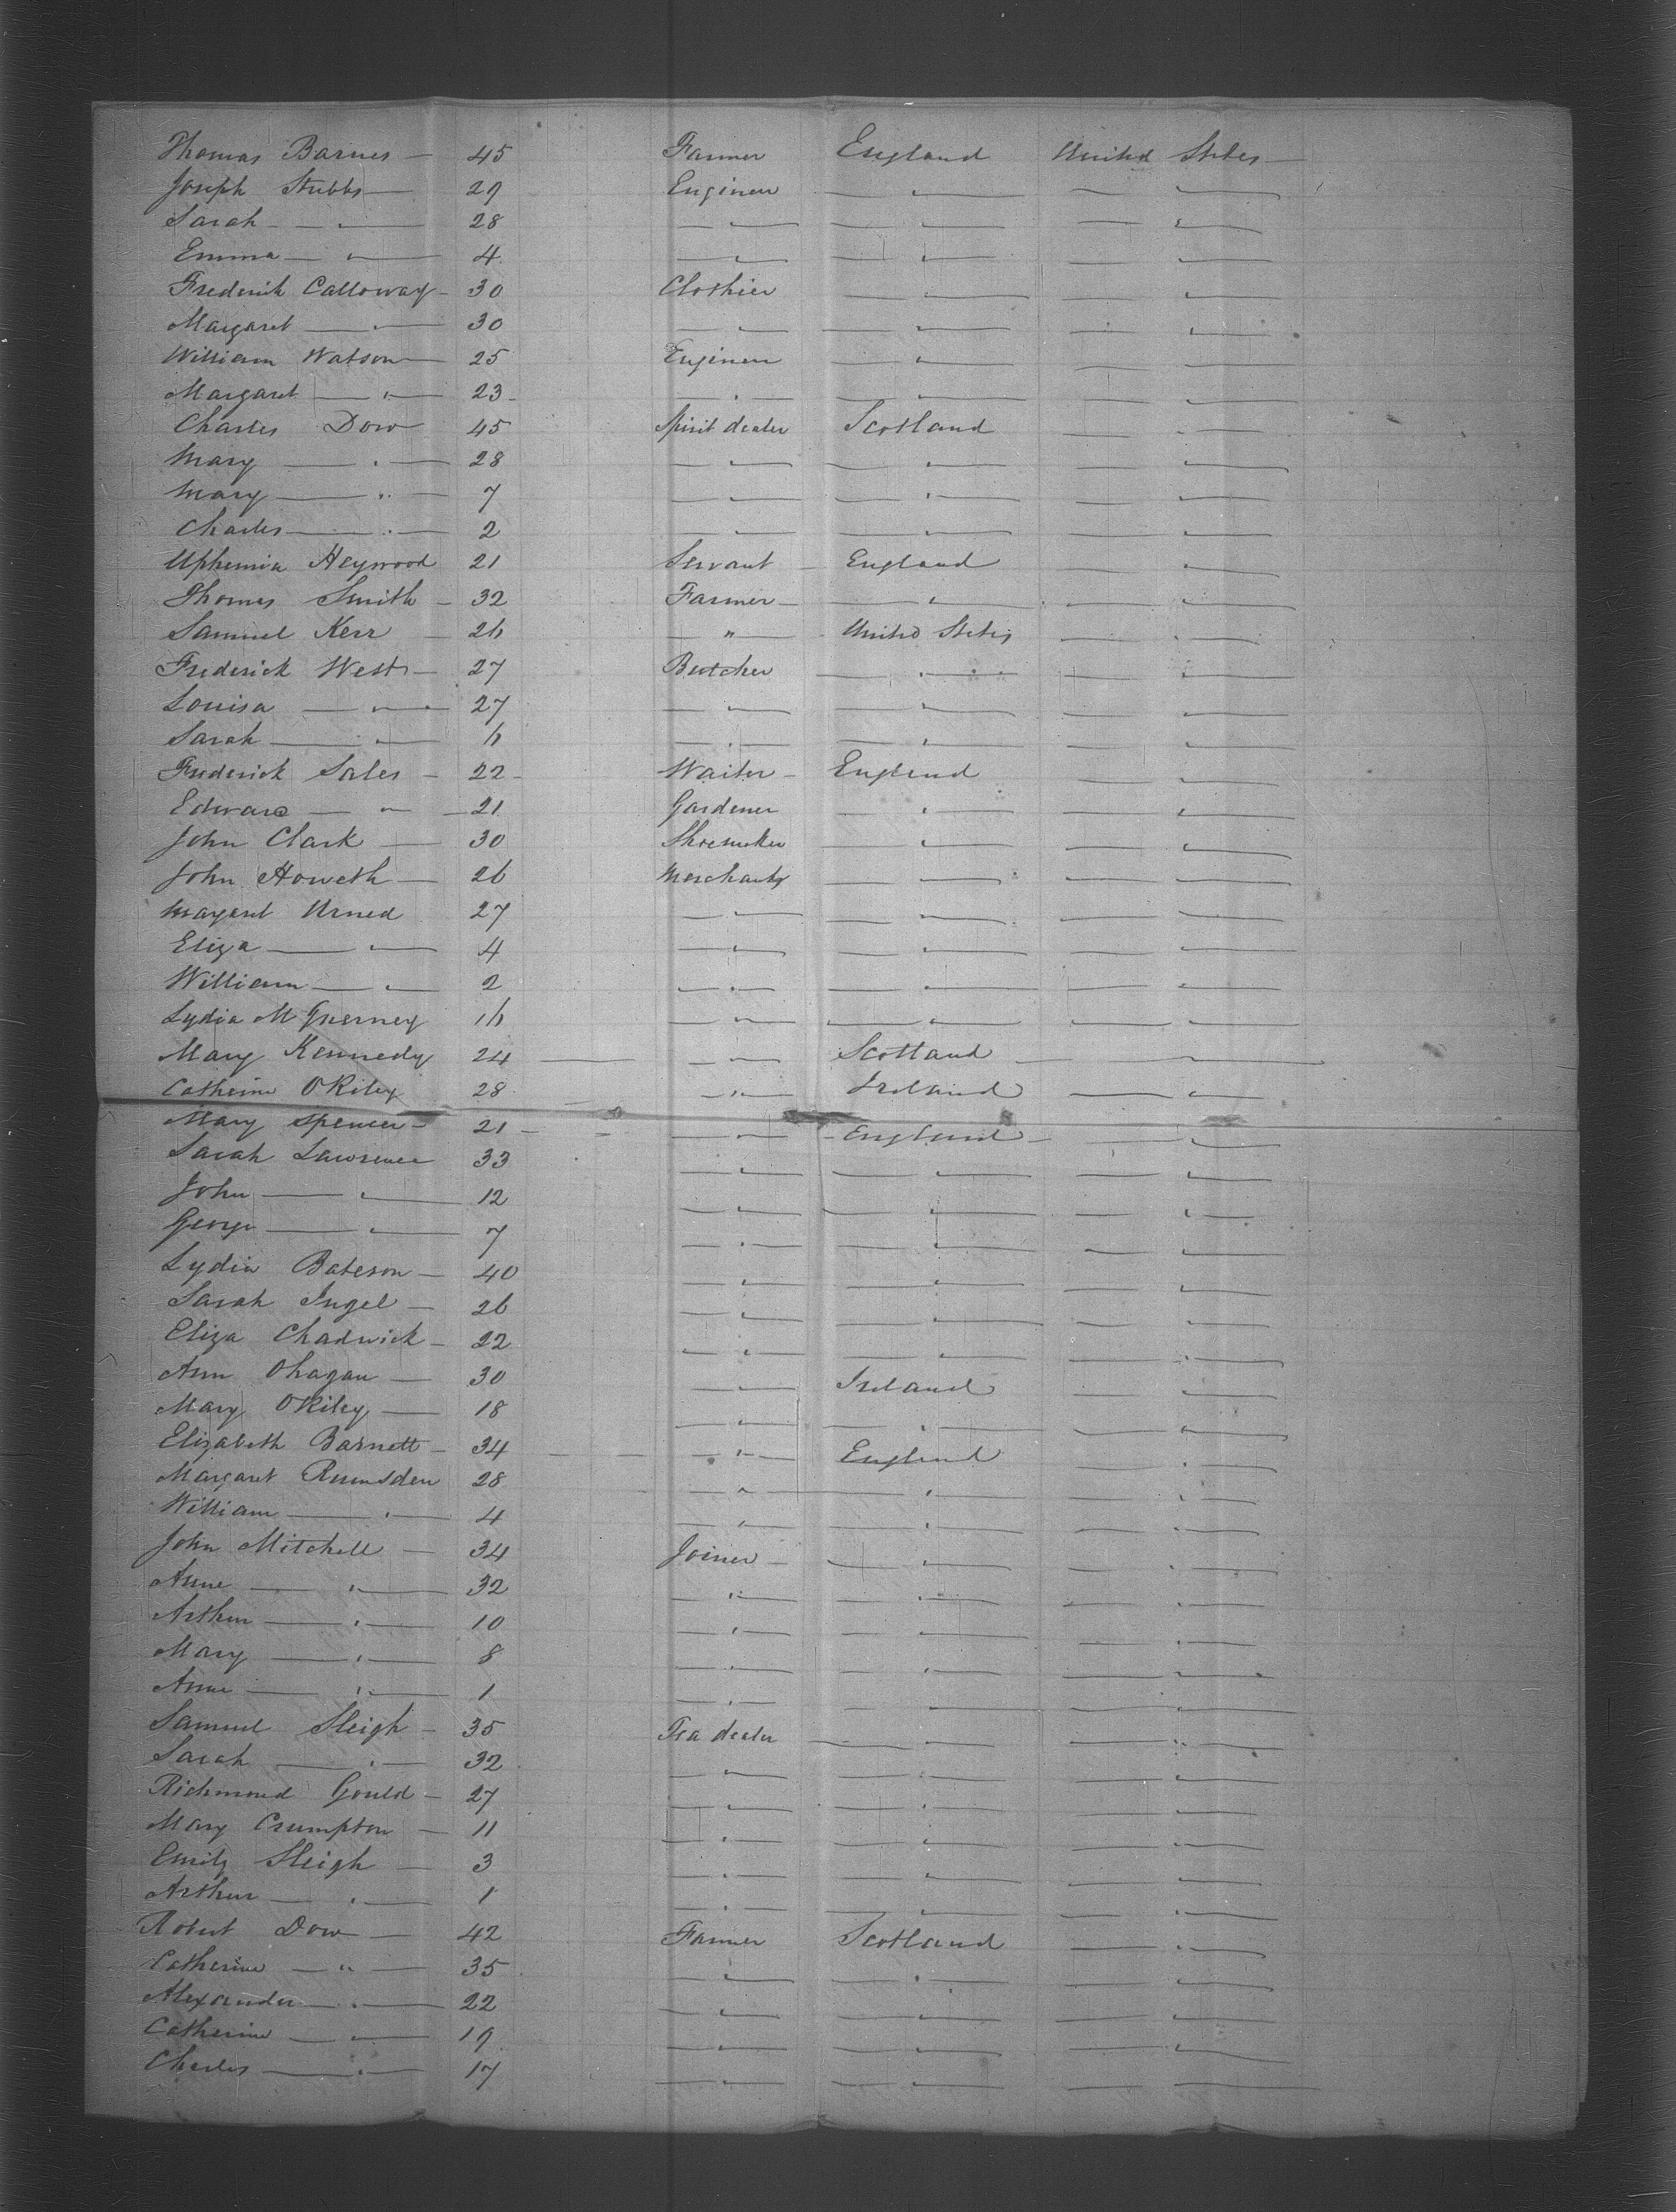 Thomas Barnes — 45 Farmer England United States —
Joseph Stubbs — 29 Engineer — " — — " —
Sarah — " — 28 — " — — " — — " —
Emma — " — 4 — " — — " — — " —
Frederick Calloway — 30 Clothier — " — — " —
Margaret — " — 30 — " — — " — — " —
William Watson — 25 Engineer — " — — " —
Margaret — " — 23 — " — — " — — " —
Charles Dow 45 Spirit dealer Scotland — " —
Mary — " — 28 — " — — " — — " —
Mary — " — 7 — " — — " — — " —
Charles — " — 2 — " — — " — — " —
Uphemia Heywood 21 Servant — England — " —
Thomas Smith — 32 Farmer — — " — — " —
Samuel Kerr — 26 — " — United States — " —
Frederick West — 27 Butcher — " — — " —
Louisa — " — 27 — " — — " — — " —
Sarah — " — 6 — " — — " — — " —
Frederick Sales — 22 Waiter — England — " —
Edward — " — 21 Gardener — " — — " —
John Clark — 30 Shoemaker — " — — " —
John Howeth — 26 Merchant — " — — " —
Margaret Urned 27 — " — — " — — " —
Eliza — " — 4 — " — — " — — " —
William — " — 2 — " — — " — — " —
Lydia M Guerney 16 — " — — " — — " —
Mary Kennedy 24 — — " — Scotland — " —
Catherine ORiley 28 — " — Ireland — " —
Mary Spencer — 21 — — " — England — — " —
Sarah Lawrence 33 — " — — " — — " —
John — " — 12 — " — — " — — " —
George — " — 7 — " — — " — — " —
Lydia Bateson — 40 — " — — " — — " —
Sarah Ingel — 26 — " — — " — — " —
Eliza Chadwick — 22 — " — — " — — " —
Ann Ohagan — 30 — " — Ireland — " —
Mary ORiley — 18 — " — — " — — " —
Elizabeth Barnett — 34 — " — England — " —
Margaret Rumsden 28 — " — — " — — " —
William — " — 4 — " — — " — — " —
John Mitchell — 34 Joiner — — " — — " —
Anne — " — 32 — " — — " — — " —
Arthur — " — 10 — " — — " — — " —
Mary — " — 8 — " — — " — — " —
Anne — " — 1 — " — — " — — " —
Samuel Sleigh — 35 Tea dealer — " — — " —
Sarah — " — 32 — " — — " — — " —
Richmond Gould — 27 — " — — " — — " —
Mary Crumpton — 11 — " — — " — — " —
Emily Sleigh — 3 — " — — " — — " —
Arthur — " — 1 — " — — " — — " —
Robert Dow — 42 Farmer Scotland — " —
Catherine — " — 35 — " — — " — — " —
Alexander — " — 22 — " — — " — — " —
Catherine — " — 19 — " — — " — — " —
Charles — " — 17 — " — — " — — " —